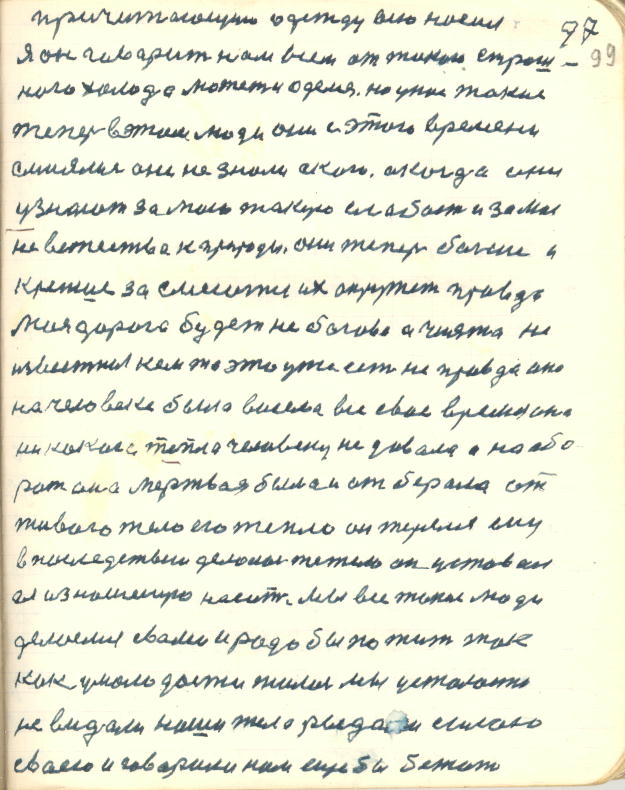 причитающую одежду всю носил 77
я он говарит нам всем от такого страш – 99
ного холода может и оделся. но у нас такие
тепер в этом люди они с этого времени
смиялися они не знали с кого. а когда они
узнают за мою такую слабост и за мое
не ветества к природы. они тепер больше и
крепше за смелости их окружет правда
моя дорога будет не богова а чиято не
известная кем то это уже ест не правда оно
на человеке была висела все свое время она
никокога тепла человеку не довала а наобо
рот она мертвая была и отберала от
живого тело его тепло он терялся ему
в последствии делалос тежело он уставал
ея изношеную насит. Мы все токие люди
делоемся сваею и радо бы пожит так
как у молодости жилос мы усталости
не видали наши тело рыдали силою
сваею и говарили нам еще бы бежат